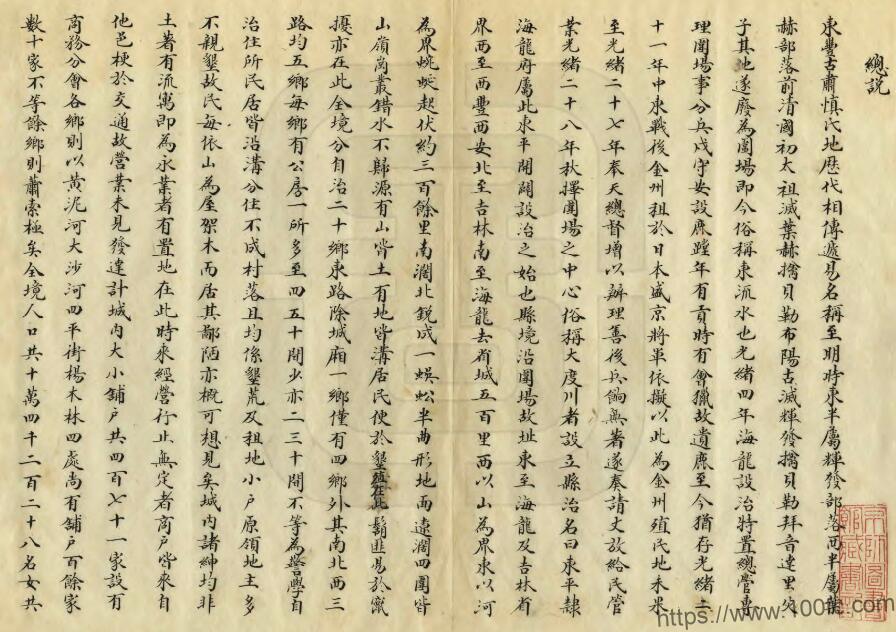 總說
東豐古肅慎氏地歷代相傳遞易名稱至明時東半屬輝發部落西半屬葉
赫部落前清國初太祖滅葉赫擒貝勒布陽古滅輝發擒貝勒拜音達里父
子其地遂廢為圍場即今俗稱東流水也光緒四年海龍設治特置總管專
理圍場事分兵戍守安設鹿蹚年有貢時有會獵故遺鹿至今猶存光緒二
十一年中東戰後金州租於日本盛京將軍依擬以此為金州殖民地未果
至光緒二十七年奉天總督增以辦理善後兵餉無著遂奉請丈放給民管
業光緒二十八年秋擇圍場之中心俗稱大度川者設立縣治名曰東平隸
海龍府屬此東平開闢設治之始也縣境沿圍場故址東至海龍及吉林省
界西至西豐西安北至吉林南至海龍去省城五百里西以山為界東以河
為界蜿蜒起伏約三百餘里南濶北銳成一蜈蚣半曲形地面遼濶四圍皆
山嶺崗叢錯水不歸源有山皆土有地皆溝居民便於墾植在此鬍匪易於竄
擾亦在此全境分自治二十鄉東路除城廂一鄉僅有四鄉外其南北西三
路均五鄉每鄉有公房一所多至四五十間少亦二三十間不等為警學自
治住所民居皆沿溝分住不成村落且均係墾荒及租地小戶原領地主多
不親墾故民每依山為屋架木而居其鄙陋亦概可想見矣城內諸紳均非
土著有流寓即為永業者有置地在此時來經營行止無定者商戶皆來自
他邑梗於交通故營業未見發達計城內大小舖戶共四百七十一家設有
商務分會各鄉則以黃泥河大沙河四平街楊木林四處尚有舖戶百餘家
數十家不等餘鄉則蕭索極矣全境人口共十萬四千二百二十八名女共
https://www.1000